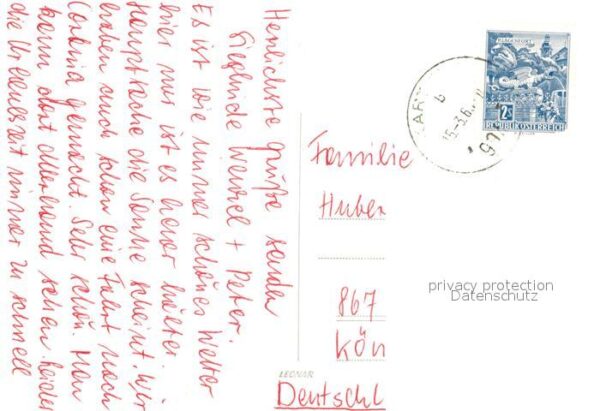 Herzlichste Grüße senden
Sieglinde + Peter.
Es ist wie immer schönes Wetter
hier nur ist es heuer
Hauptsache die Sonne scheint. Wir
haben auch schon eine Fahrt nach
gemacht. Sehr schön. Man
kann dort allerhand sehen. Leider
die Urlaubszeit immer zu schnell
Familie
Huber
867
Deutschl
LEONAR
KLAGENFURT
2S
REPUBLIK ÖSTERREICH
b
privacy protection
Datenschutz